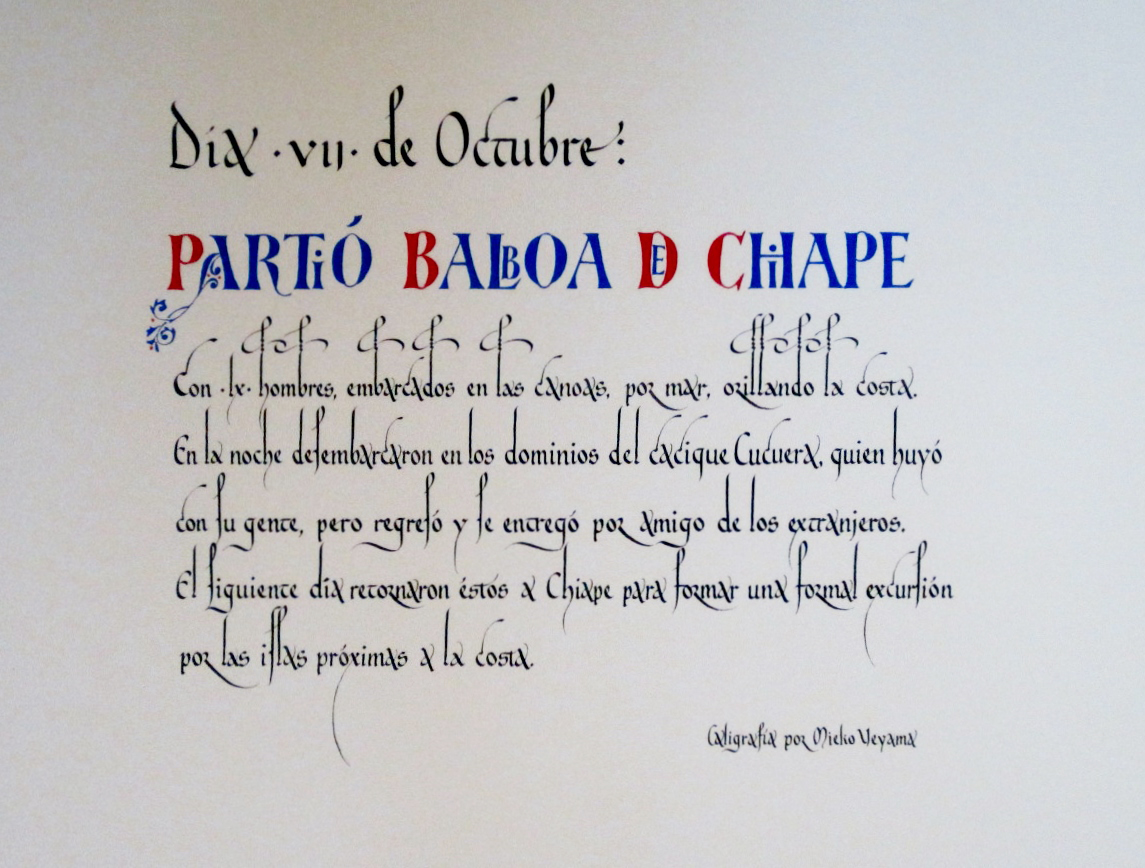 Día ·vii· de Octubre:
PARTiÓ BALBOA DE CHiAPE
Con ·lx· hombres, embarcados en las canoas, por mar, orillando la costa.
En la noche deſembarcaron en los dominios del cacique Cucuera, quien huyó
con ſu gente, pero regreſó y ſe entregó por amigo de los extranjeros.
El ſiguiente día retornaron éstos a Chiape para formar una formal excurſión
por las iſlas próximas a la costa.
Caligrafía por Mieko Ueyama